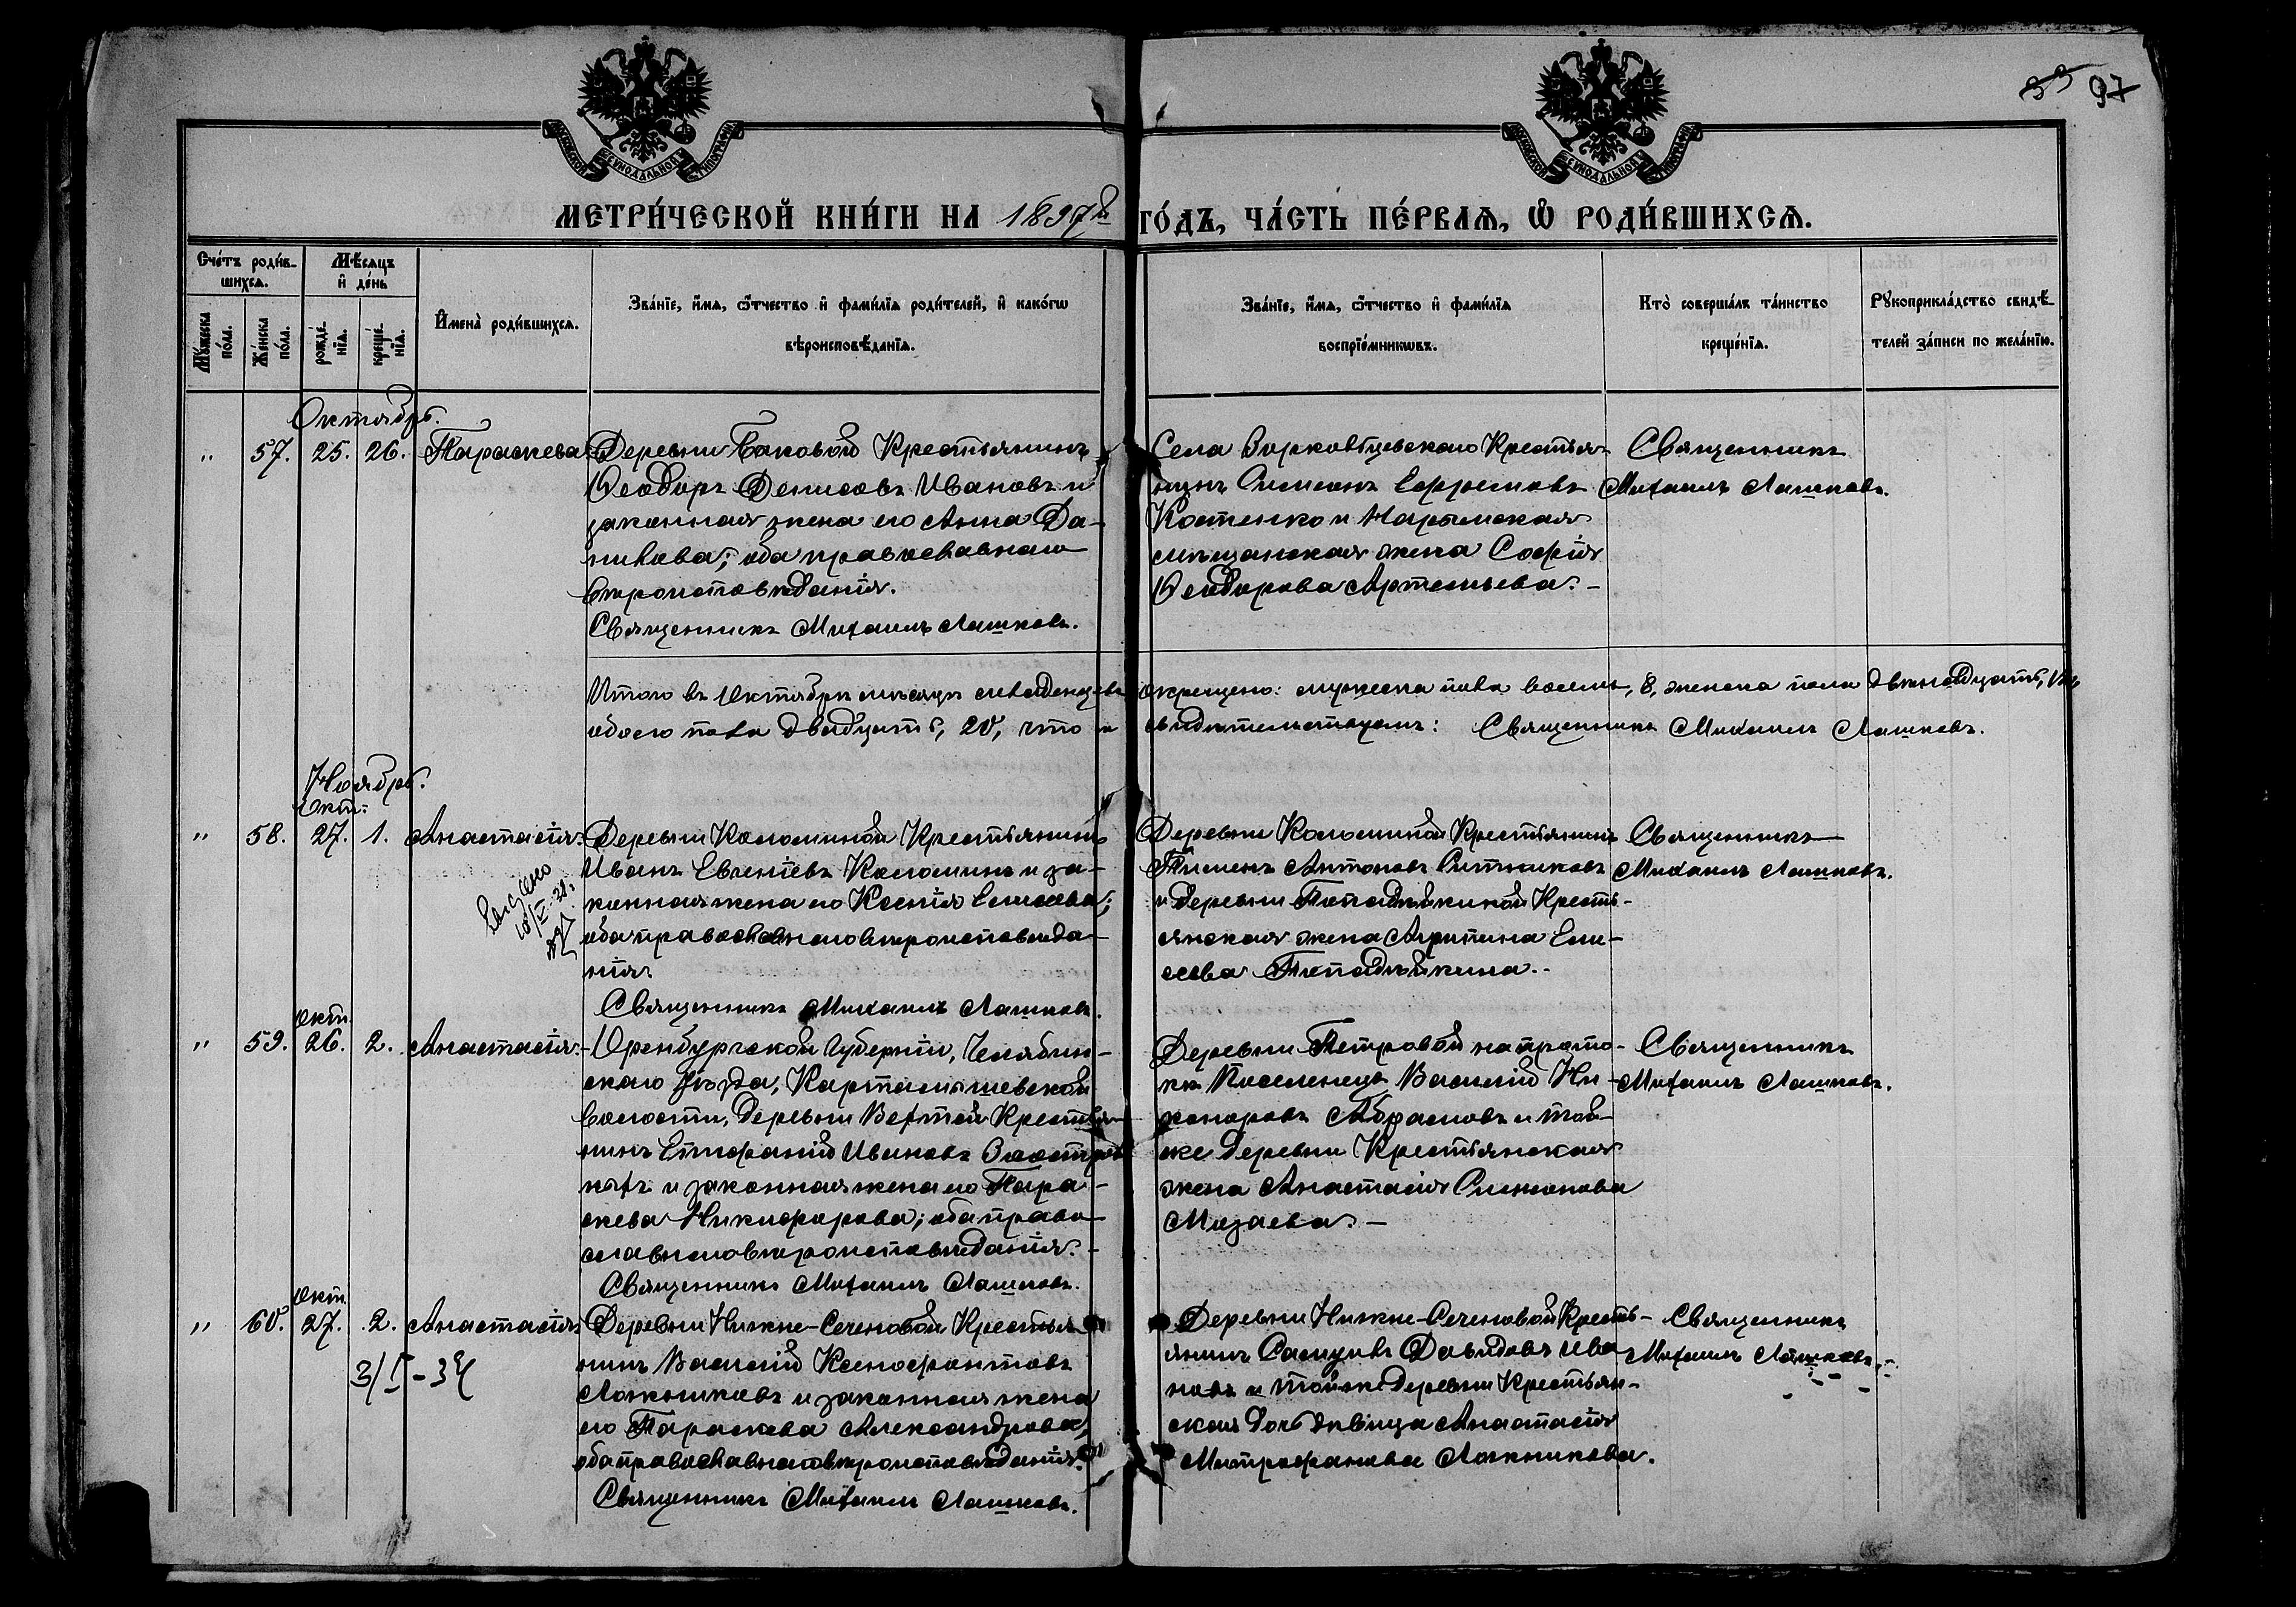 33 97
МЕТРИ́ЧЕСКОЙ КНИ́ГИ НА 1897й ГО́ДЪ, ЧА́СТЬ ПЕ́РВАЯ, Ѡ РОДИ́ВШИХСЯ.
Счетъ родив-
шихся.
Мѣсяцъ
и день
Мужеска
пола.
Женска
пола.
рожде-
нія.
креще-
нія.
Имена родившихся.
Званіе, имя, отчество и фамилія родителей, и какогѡ
вѣроисповѣданія.
Званіе, имя, отчество и фамилія
воспріемникѡвъ.
Кто совершалъ таинство
крещенія.
Рукоприкладство свидѣ-
телей записи по желанію.
Октябрь.
" 57. 25. 26. Параскева
Деревни Баковой Крестьянинъ
Ѳеодоръ Денисовъ Ивановъ и
законная жена его Анна Да-
нилова; оба православнаго
вѣроисповѣданія.
Священникъ Михаилъ Лашковъ.
Села Крестья-
нинъ Симеонъ Ефремовъ
Костенко и Нарымская
мѣщанская жена Софія
Ѳеодорова Артемьева. -
Священникъ
Михаилъ Лашковъ.
Итого въ Октябрѣ мѣсяцѣ младенцевъ окрещено: мужеска пола восемь, 8, женска пола двѣнадцать, 12,
обоего пола двадцать, 20, что и свидѣтельствуемъ: Священникъ Михаилъ Лашковъ.
Ноябрь.
Окт.
" 58. 27. 1. Анастасія.
Деревни Коломиной Крестьянинъ
Иванъ Евгеніевъ Коломинъ и за-
конная жена его Ксенія Елисеева;
оба православнаго вѣроисповѣда-
нія.
Священникъ Михаилъ Лашковъ.
Деревни Коломиной Крестьянинъ
Пименъ Антоновъ Ситниковъ
и деревни Попадѣйкиной Кресть-
янская жена Агрипина Ели-
сеева Попадѣйкина. -
Священникъ
Михаилъ Лашковъ.
Окт.
" 59. 26. 2. Анастасія.
Оренбургской Губерніи, Челябин-
скаго уѣзда, Карталяшевской
волости, деревни Ветлой Крестья-
нинъ Епифаній Ивановъ
и законная жена его Пара-
скева Никифорова; оба право-
славнаго вѣроисповѣданія. -
Священникъ Михаилъ Лашковъ.
Деревни Петровой на прото-
кѣ Поселенецъ Василій Ни-
каноровъ Абрамовъ и той-
же деревни Крестьянская
жена Анастасія Симонова
Мизаева. -
Священникъ
Михаилъ Лашковъ.
Окт.
" 60. 27. 2. Анастасія.
3/I-34
Деревни Нижне-Сеченовой Крестья-
нинъ Василій Ксенофонтовъ
Ложниковъ и законная жена
его Параскева Александрова;
оба православнаго вѣроисповѣданія.
Священникъ Михаилъ Лашковъ.
Деревни Нижне-Сеченовой Кресть-
янинъ Самуилъ Давидовъ Ива-
новъ и тойже деревни Крестьян-
ская дочь дѣвица Анастасія
Митрофанова Ложникова.
Священникъ
Михаилъ Лашковъ.